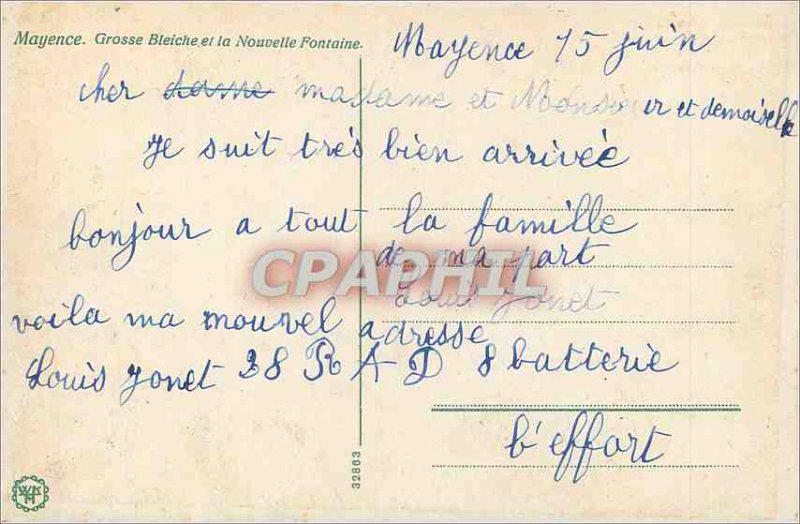 Mayence. Grosse Bleiche et la Nouvelle Fontaine.
Mayence 15 juin
cher dame madame et Monsieur et demoiselle
Je suit très bien arrivée
bonjour a tout la famille
de ma part
Louis Jonet
voila ma nouvel adresse
Louis Jonet 38 R A D 8 batterie
b'effort
32863
CPAPHIL